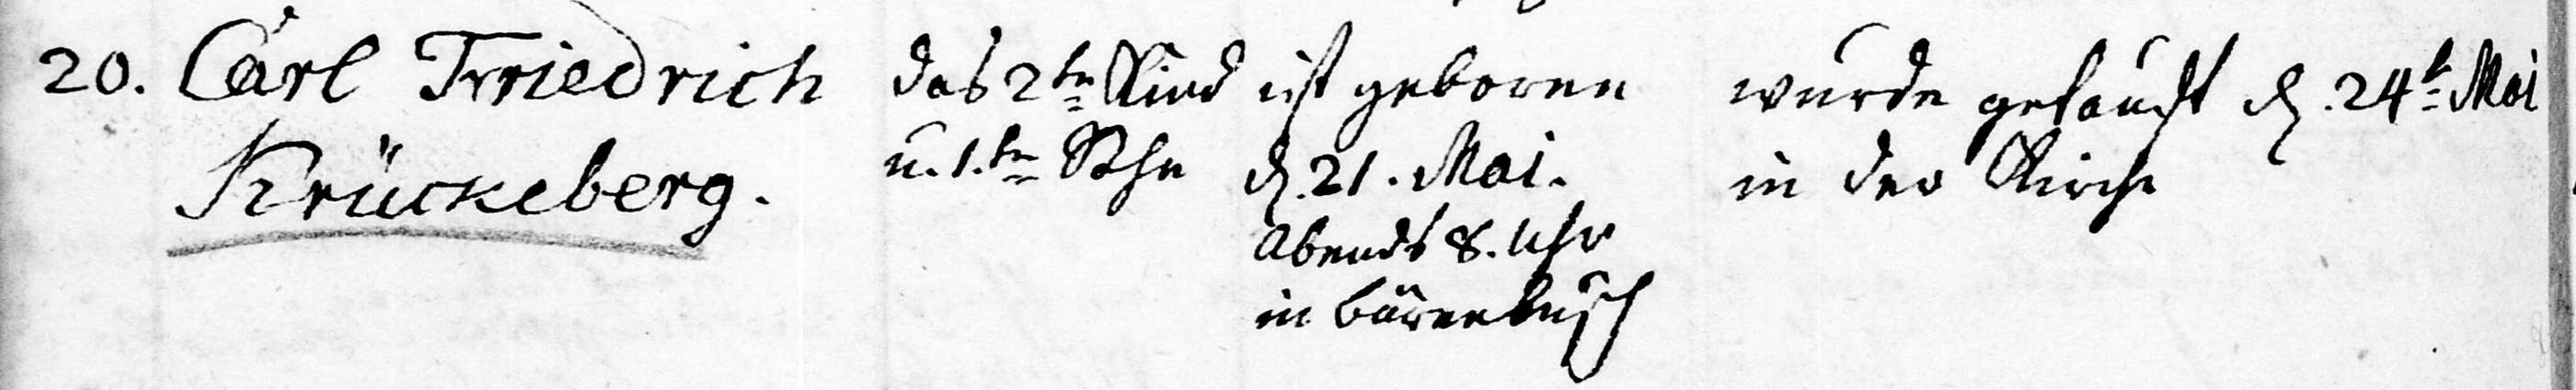 20. Carl Friedrich das 2te Kind ist geboren wurde getauft d. 24t Mai
Krückeberg. u. 1.te Sohn d. 21. Mai. in der Kirche
Abends 8. Uhr
in Bärenbusch